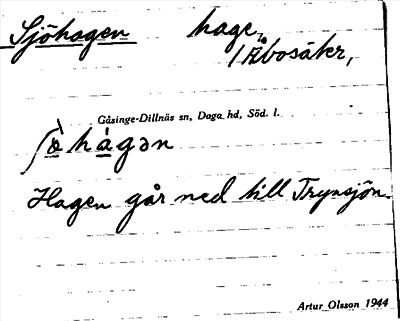 Sjöhagen hage,
i Åbosäker,
Gåsinge-Dillnäs sn, Daga hd, Söd. l.
ʃö̀hágən
Hagen går ned till Trynsjön.
Artur Olsson 1944